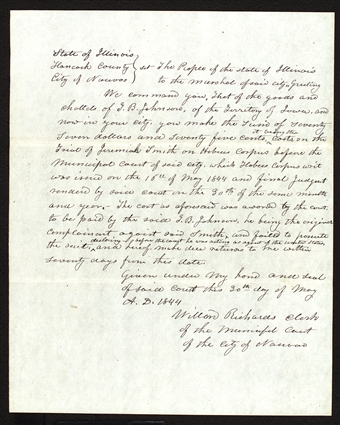 State of Illinois
Hancock County } sct The People of the state of Illinois
City of Nauvoo to the marshal of said city, Greeting
We command you, that of the goods and
chattels of T.B. Johnson, of the Territory of Iowa, and
now in your city, you make the Sum of Seventy
Seven dollars and Seventy five Cents, Costs on the
trial of Jeremiah Smith on Habeas Corpus before the
Municipal Court of said city, which Habeas Corpus writ
was issued on the 16th of May 1844 and final Judgmt
rendered by said court on the 30th of the same month
and year. The cost as aforesaid was awarded by the court
to be paid by the said T.B. Johnson, he being the original
complainant against said Smith, and failed to prosecute
declaring before the court he was acting as agent of the United States,
the suit, and make due return to me within
seventy days from this date.
Given under my hand and seal
of said Court this 30th day of May
A.D. 1844
Willard Richards Clerk
of the Municipal Court
of the City of Nauvoo